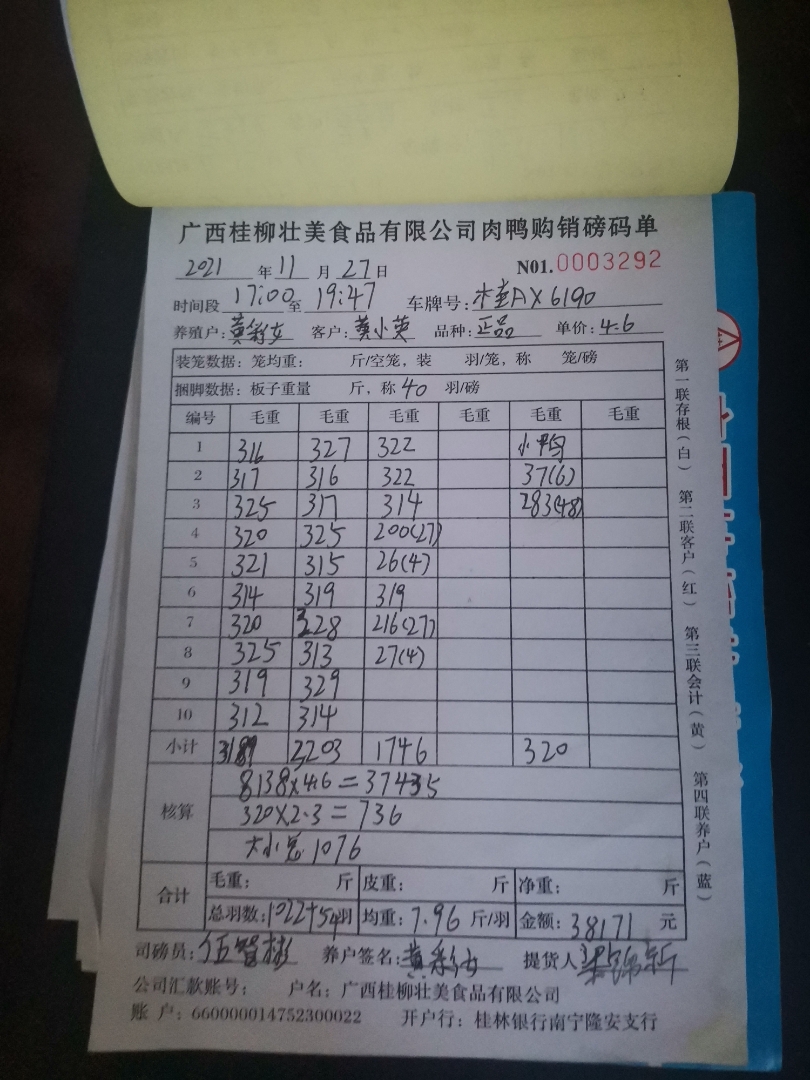 广西桂柳壮美食品有限公司肉鸭购销磅码单
2021 年 11 月 27 日 N01.0003292
时间段 17:00 至 19:47 车牌号: 桂AX6190
养殖户: 黄彩女 客户: 黄小英 品种: 正品 单价: 4.6
装笼数据: 笼均重: 斤/空笼, 装 羽/笼, 称 笼/磅
捆脚数据: 板子重量 斤, 称 40 羽/磅
编号 毛重 毛重 毛重 毛重 毛重 毛重
1 316 327 322 小鸭
2 317 316 322 37(6)
3 325 317 314 283(48)
4 320 325 200(27)
5 321 315 26(4)
6 314 319 319
7 320 328 216(27)
8 325 313 27(4)
9 319 329
10 312 314
小计 3189 3203 1746 320
核算
8138×4.6=37435
320×2.3=736
大小总1076
合计
毛重: 斤 皮重: 斤 净重: 斤
总羽数: 1022+54羽 均重: 7.96 斤/羽 金额: 38171 元
司磅员: 养户签名: 黄彩女 提货人
公司汇款账号: 户名: 广西桂柳壮美食品有限公司
账 户: 660000014752300022 开户行: 桂林银行南宁隆安支行
第一联存根(白) 第二联客户(红) 第三联会计(黄) 第四联养户(蓝)